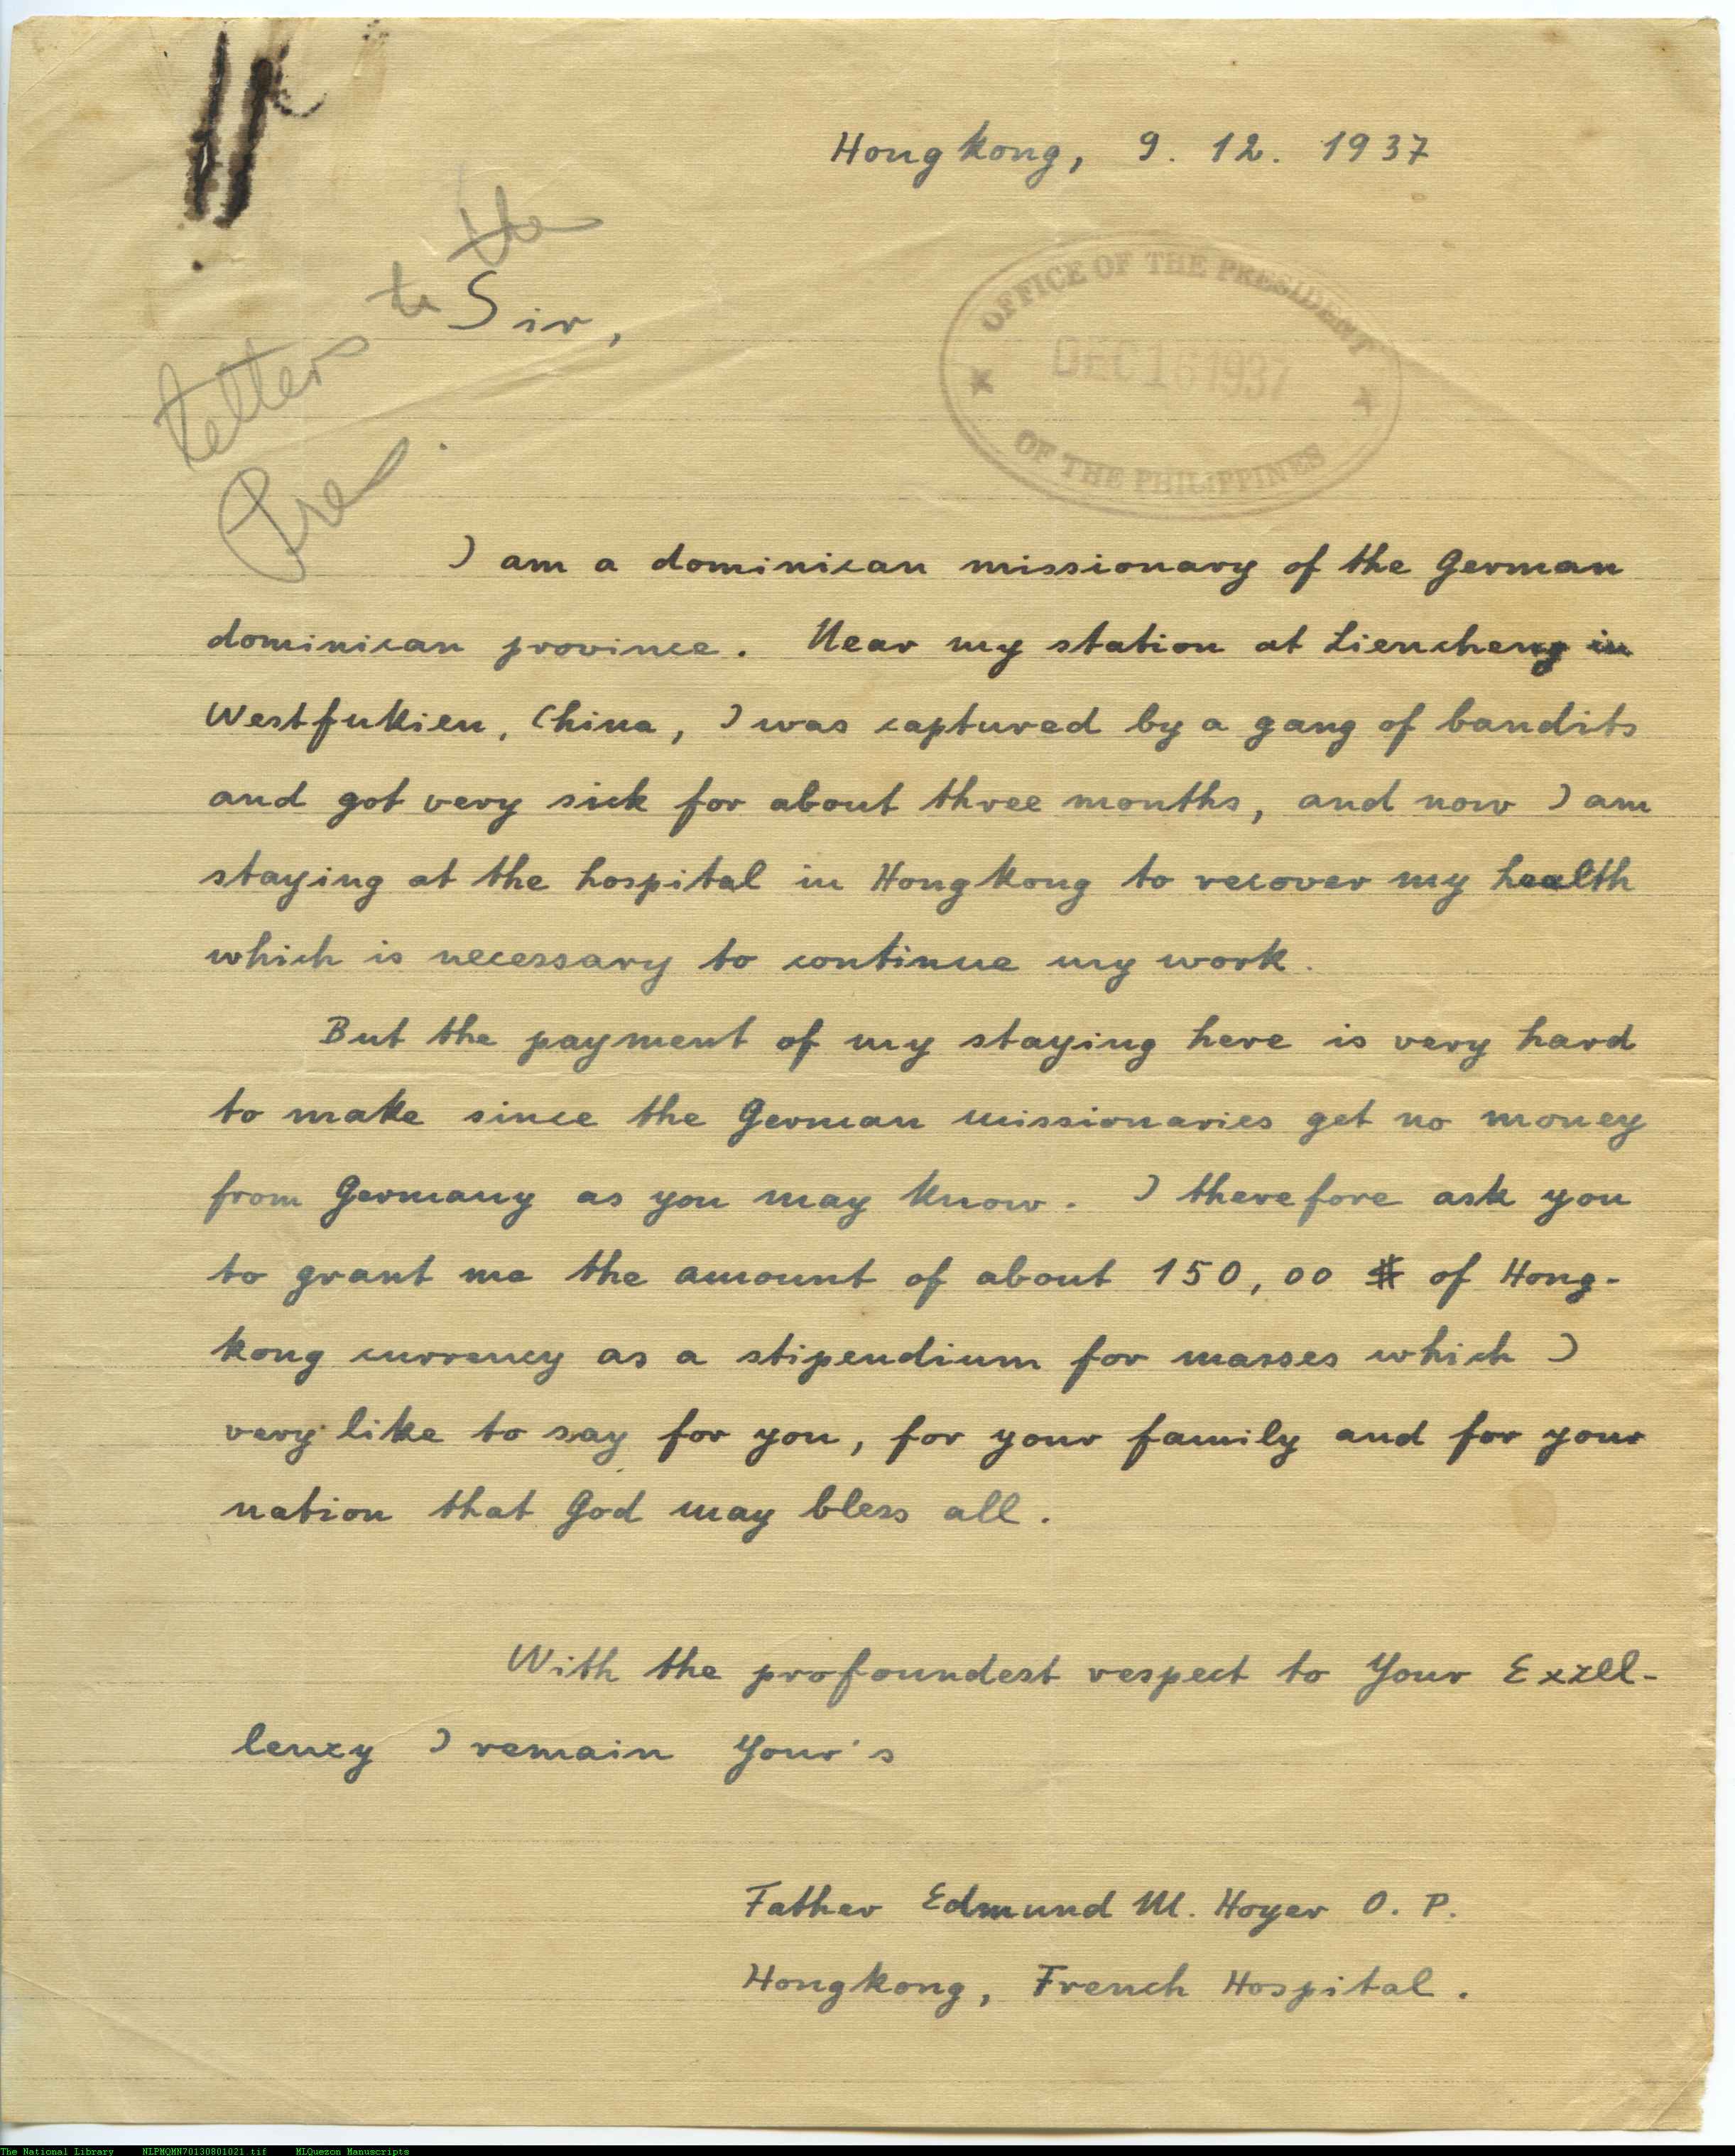 Hongkong, 9. 12. 1937
Letters to the
Pres.
Sir,
OFFICE OF THE PRESIDENT
DEC 16 1937
OF THE PHILIPPINES
I am a dominican missionary of the German
dominican province. Near my station at Liencheng in
Westfukien, China, I was captured by a gang of bandits
and got very sick for about three months, and now I am
staying at the hospital in Hongkong to recover my health
which is necessary to continue my work.
But the payment of my staying here is very hard
to make since the German missionaries get no money
from Germany as you may know. I therefore ask you
to grant me the amount of about 150,00 $ of Hong-
kong currency as a stipendium for masses which I
very like to say for you, for your family and for your
nation that God may bless all.
With the profoundest respect to Your Exzell-
lenzy I remain Your's
Father Edmund M. Hoyer O. P.
Hongkong, French Hospital.
The National Library NLPMQMN70130801021.tif MLQuezon Manuscripts